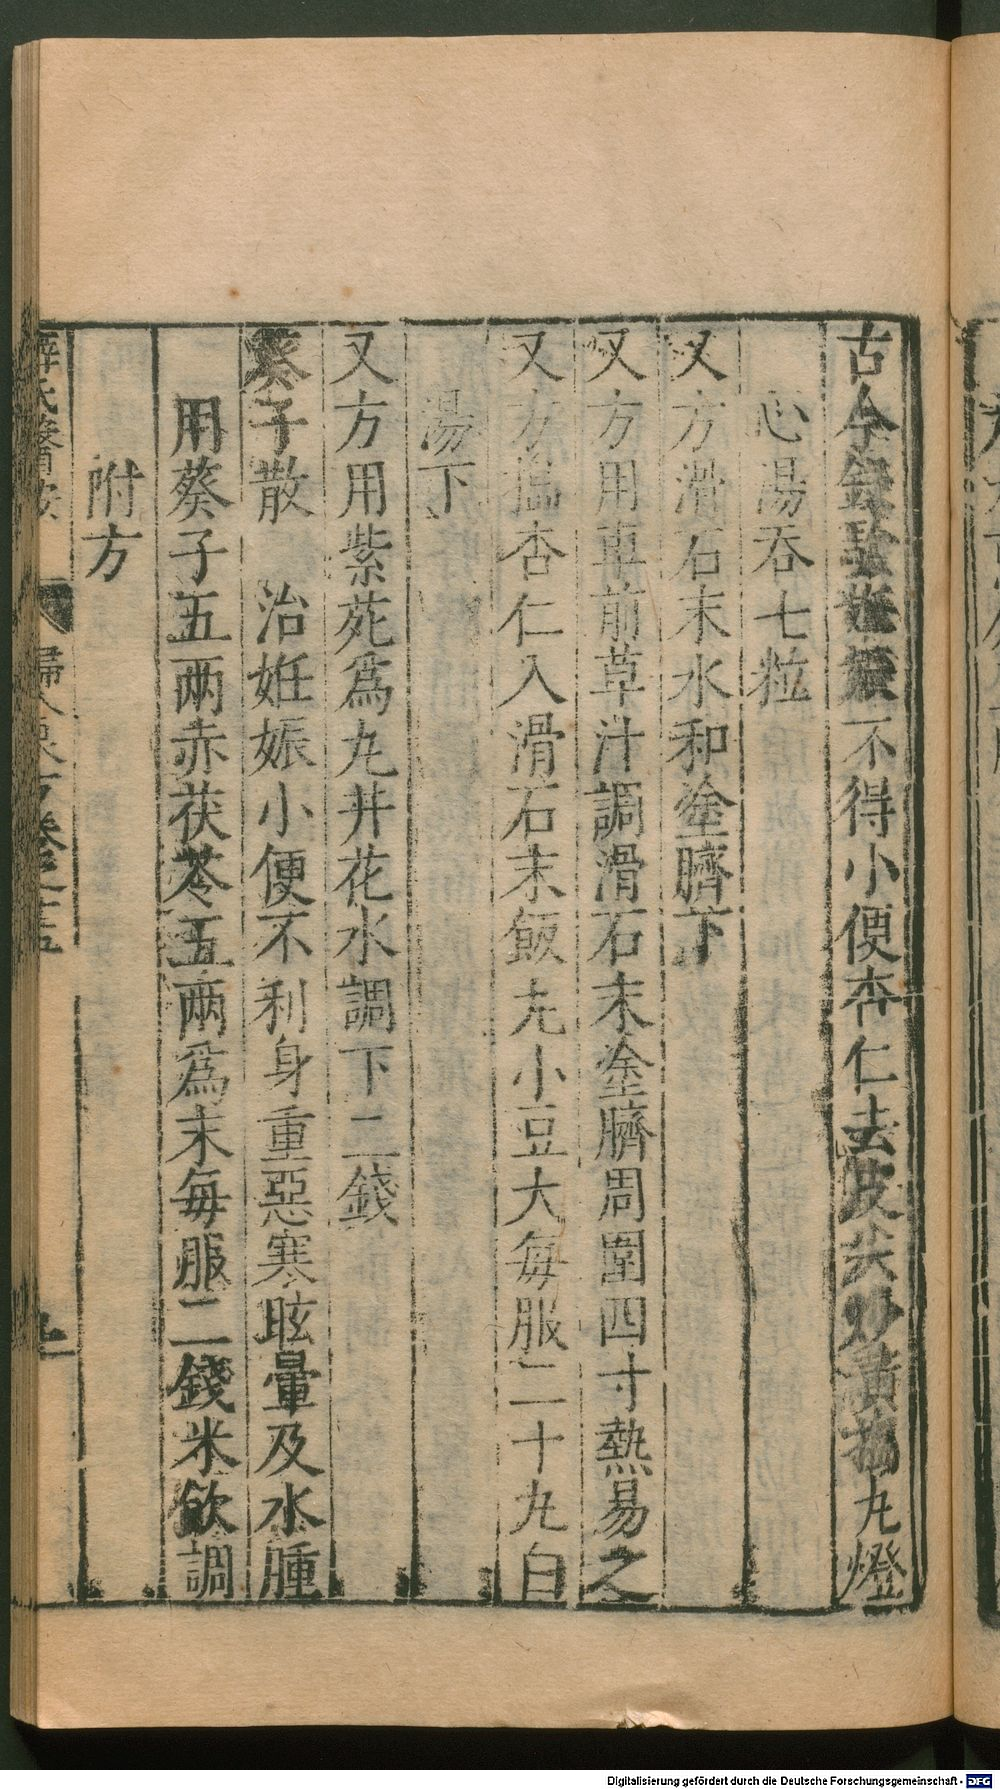 古今錄驗姙娠不得小便杏仁去皮尖炒黃搗丸燈
心湯吞七粒
又方滑石末水和塗臍下
又方用車前草汁調滑石末塗臍周圍四寸熱易之
又方搗杏仁入滑石末飯丸小豆大每服二十丸白
湯下
又方用紫苑爲丸井花水調下二錢
葵子散　治姙娠小便不利身重惡寒眩暈及水腫
用葵子五兩赤茯苓五兩爲末每服二錢米飲調
附方
薛氏醫案　婦人良方卷之十五
Digitalisierung gefördert durch die Deutsche Forschungsgemeinschaft - DFG